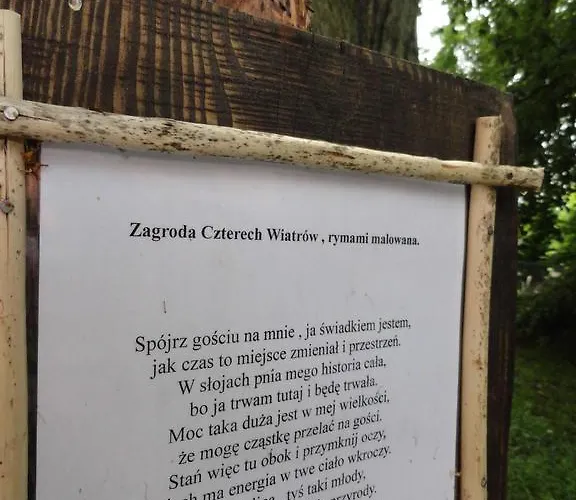 Zagroda Czterech Wiatrów , rymami malowana.
Spójrz gościu na mnie , ja świadkiem jestem,
jak czas to miejsce zmieniał i przestrzeń.
W słojach pnia mego historia cała,
bo ja trwam tutaj i będę trwała.
Moc taka duża jest w mej wielkości,
że mogę cząstkę przelać na gości.
Stań więc tu obok i przymknij oczy,
ma energia w twe ciało wkroczy.
tyś taki młody,
przyrody.